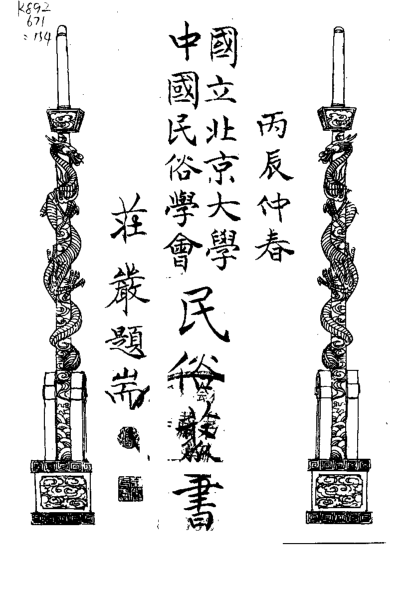 K892
671
:154
丙辰仲春
國立北京大學
中國民俗學會
民俗叢書
莊嚴題耑